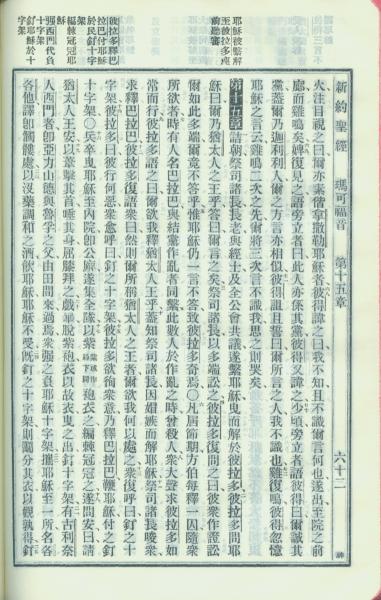 新約聖經 馬可福音 第十五章 六十二
火注目視之曰爾亦素偕拿撒勒耶穌者彼得諱之曰我不知且不識爾言何也遂出至院之前
廊而雞鳴矣婢復見之語旁立者曰此人亦係其黨彼得又諱之少頃旁立者語彼得曰爾誠其
黨蓋爾乃迦利利人爾之方言亦相似彼得詛且誓曰爾所言之人我不識也雞復鳴彼得忽憶
耶穌之言云雞鳴二次之先爾將三次言不識我思之則哭矣
耶穌被繫解
至彼拉多處
前聽審
第十五章 詰朝祭司諸長長老與經士及全公會共議遂繫耶穌曳而解於彼拉多彼拉多問耶
穌曰爾乃猶太人之王乎答曰爾言之矣祭司諸長以多端訟之彼拉多復問之曰彼衆作證訟
爾如此多端爾竟不答乎惟耶穌仍一言不答致彼拉多奇焉〇凡屆節期方伯每釋一囚隨衆
所欲者時有人名巴拉巴與結黨作亂者同繫此數人於作亂之時曾殺人衆大聲求彼拉多如
常而行彼拉多語之曰爾欲我釋猶太人王乎蓋知祭司諸長因媢嫉而解耶穌祭司諸長唆衆
求釋巴拉巴彼拉多復語衆曰然則爾所稱猶太人之王者爾欲我何以處之衆復呼曰釘之十
彼拉多釋巴
拉巴付耶穌
於民釘十字
架
字架彼拉多曰彼行何惡衆愈呼曰釘之十字架彼拉多欲徇衆意乃釋巴拉巴鞭耶穌付之釘
編棘冠冠耶
穌
十字架〇兵卒曳耶穌至內院卽公廨遂集全隊以紫袍衣之編棘冠冠之遂問安曰請
猶太人王安以葦擊其首唾其身屈膝拜之戲畢脫紫袍衣以故衣曳之出釘十字架有古利奈
强西門代負
十字架
人西門者卽亞力山德與魯孚之父由田間來過焉衆强之負耶穌十字架攜耶穌至一所名各
釘耶穌於十
字架
各他譯卽髑髏處以沒藥調和之酒飲耶穌耶穌不受旣釘之十字架則鬮分其衣以觀孰得釘